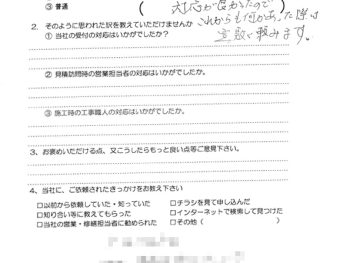 ③ 普通 ( 対応が良かったので
これからも何かあった際は
頼みます。
2．そのように思われた訳を教えていただけませんか
① 当社の受付の対応はいかがでしたか？
② 見積訪問時の営業担当者の対応はいかがでしたか？
③ 施工時の工事職人の対応はいかがでしたか？
3、お褒めいただける点、又こうしたらもっと良い点等ご意見下さい。
4、当社に、ご依頼されたきっかけをお教え下さい
□以前から依頼していた・知っていた □チラシを見て申し込んだ
□知り合い等に教えてもらった □インターネットで検索して見つけた
□当社の営業・修繕担当者に勧められた □その他（ ）